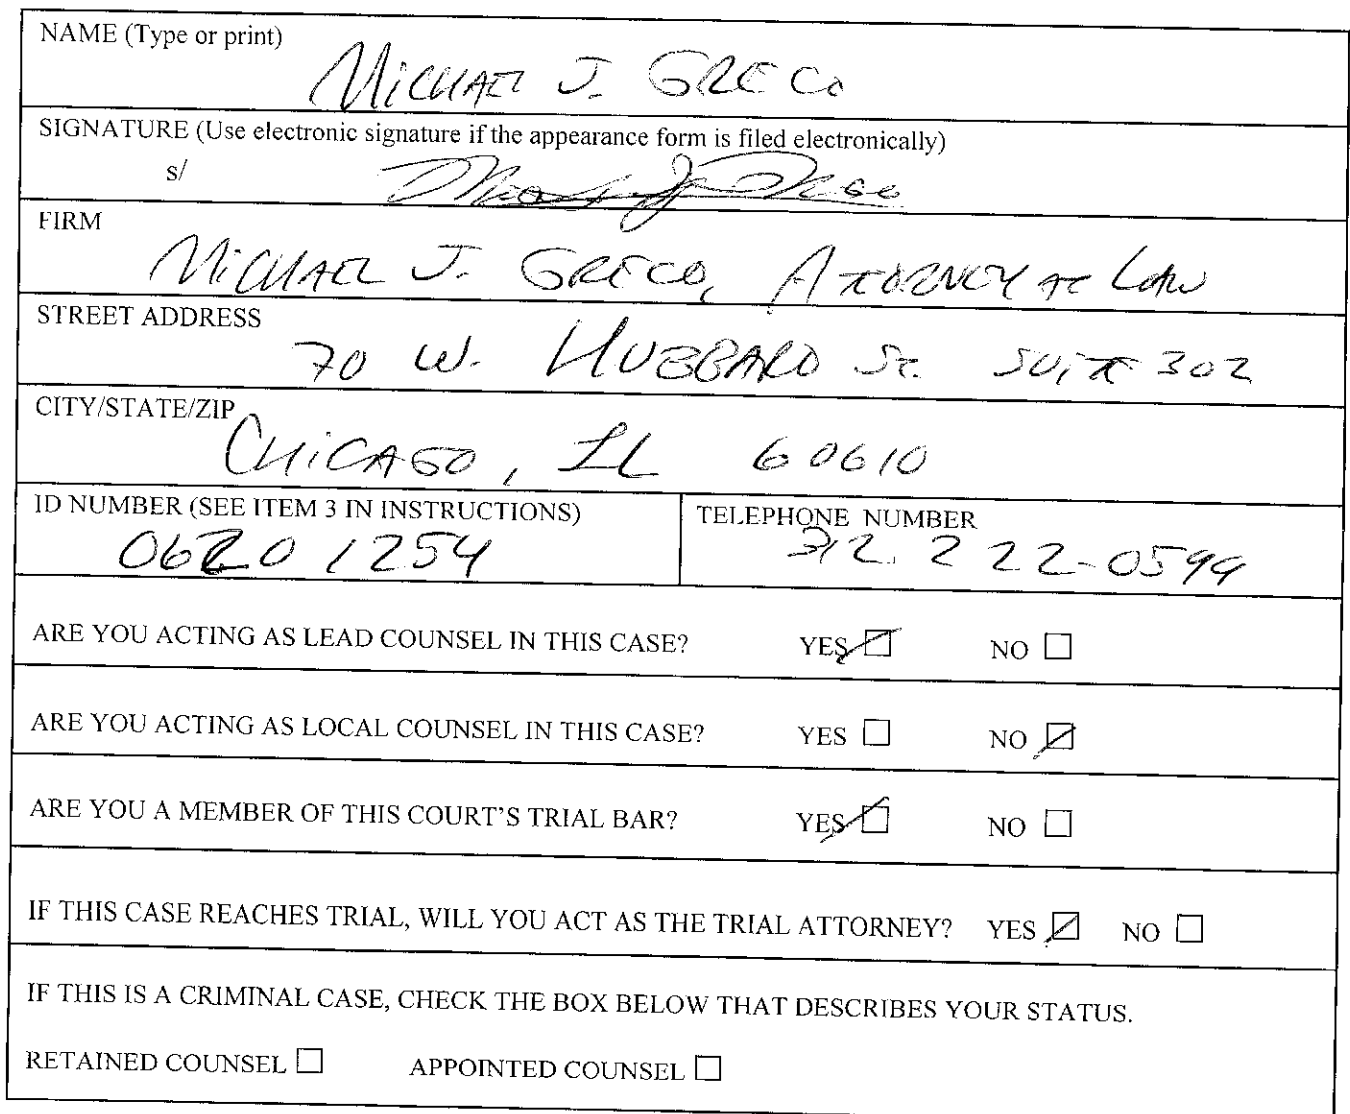 NAME (Type or print)
MICHAEL J. GRECO
SIGNATURE (Use electronic signature if the appearance form is filed electronically)
s/
FIRM
MICHAEL J. GRECO, ATTORNEY AT LAW
STREET ADDRESS
70 W. HUBBARD ST. SUITE 302
CITY/STATE/ZIP
CHICAGO, IL 60610
ID NUMBER (SEE ITEM 3 IN INSTRUCTIONS) TELEPHONE NUMBER
06201254 312.222-0599
ARE YOU ACTING AS LEAD COUNSEL IN THIS CASE? YES NO
ARE YOU ACTING AS LOCAL COUNSEL IN THIS CASE? YES NO
ARE YOU A MEMBER OF THIS COURT'S TRIAL BAR? YES NO
IF THIS CASE REACHES TRIAL, WILL YOU ACT AS THE TRIAL ATTORNEY? YES NO
IF THIS IS A CRIMINAL CASE, CHECK THE BOX BELOW THAT DESCRIBES YOUR STATUS.
RETAINED COUNSEL APPOINTED COUNSEL